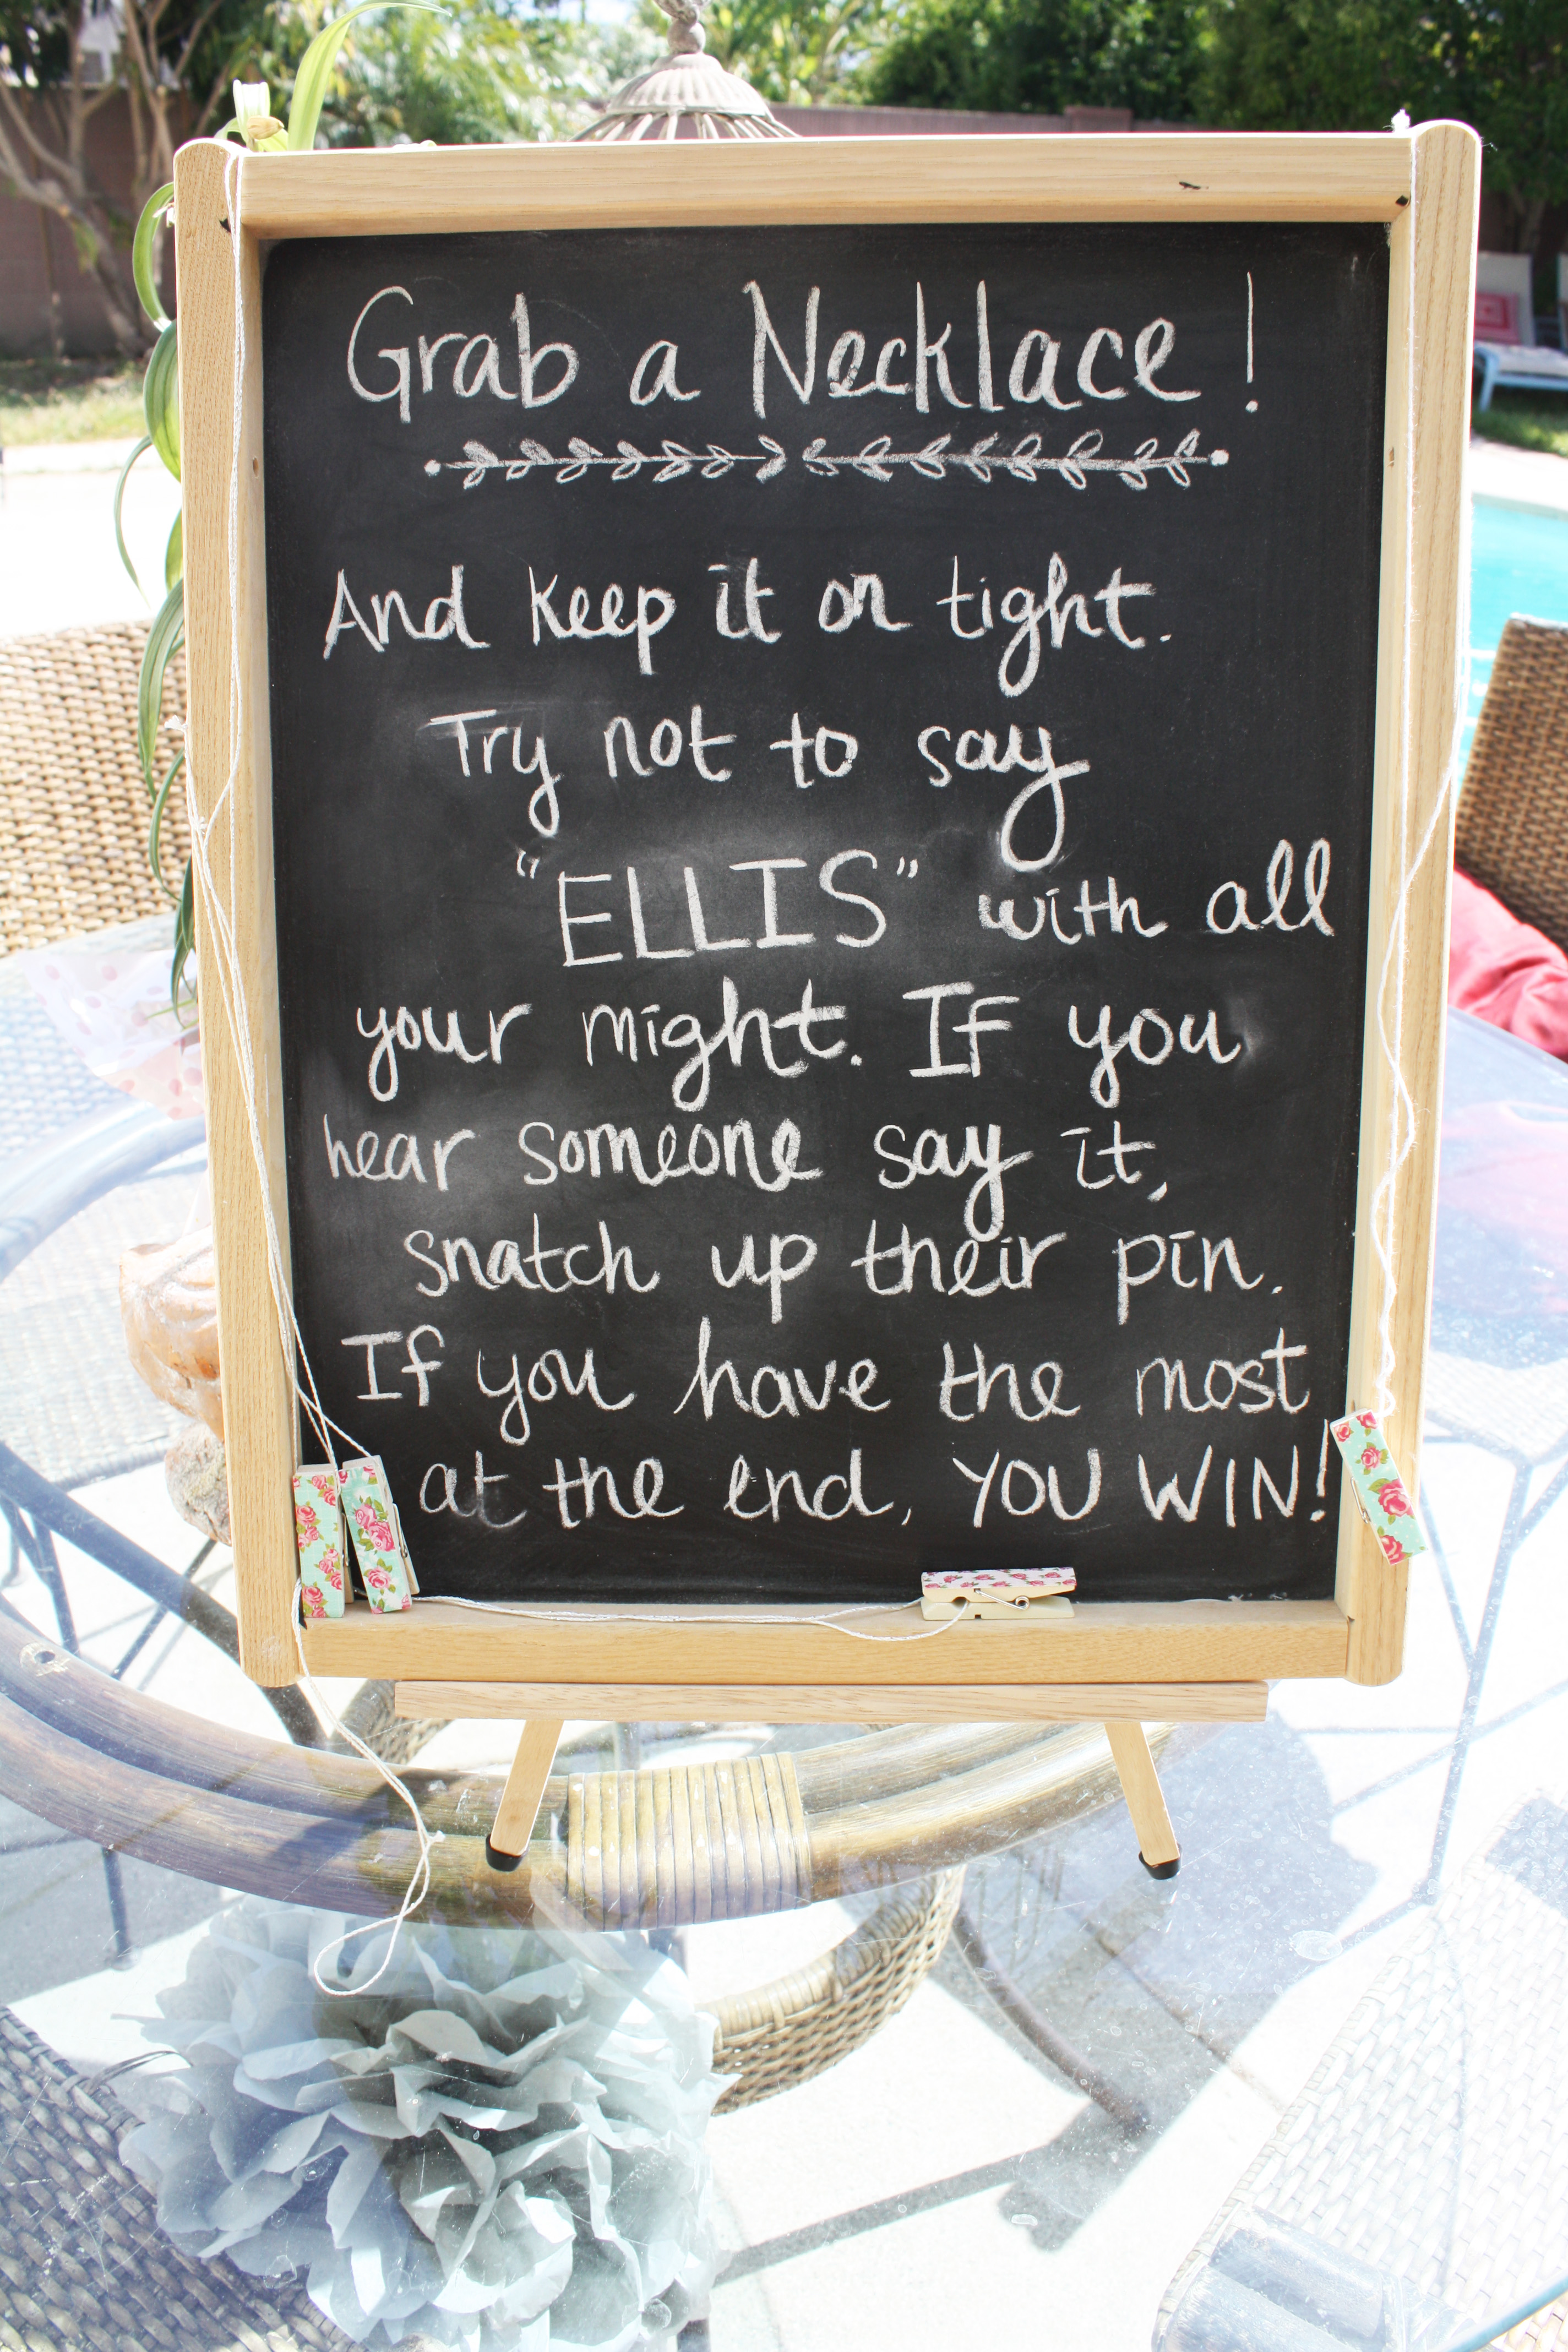 Grab a Necklace!
And keep it on tight.
Try not to say
"ELLIS" with all
your might. If you
hear someone say it,
snatch up their pin.
If you have the most
at the end, YOU WIN!